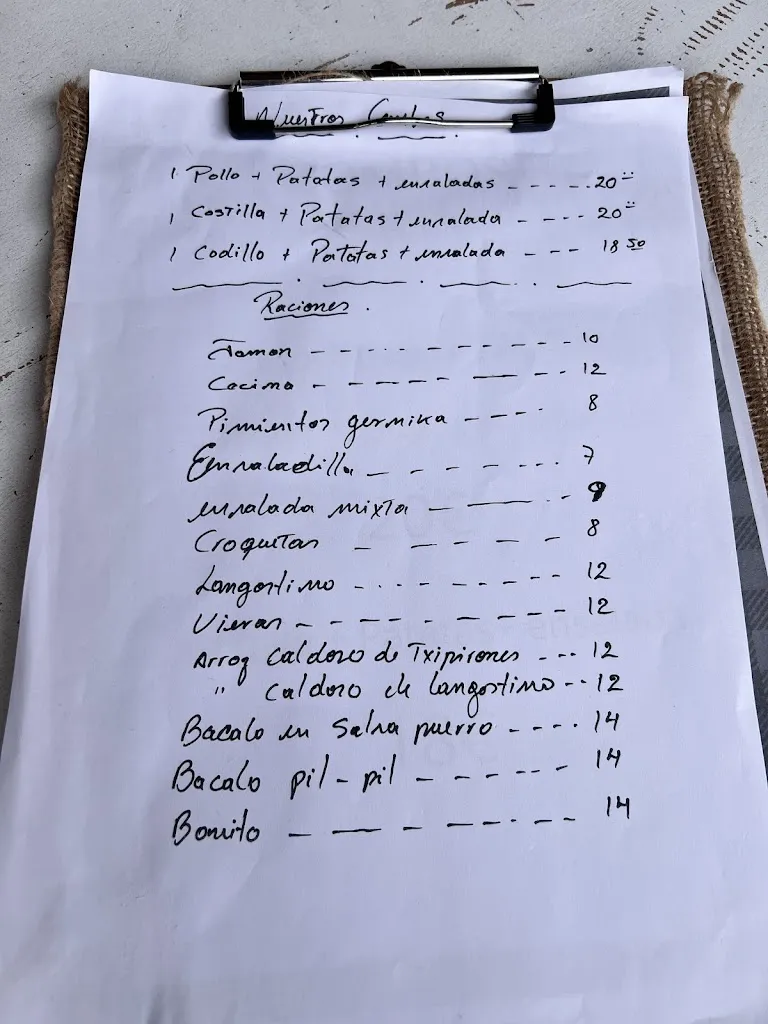 Nuestros Combos.
1 Pollo + Patatas + ensaladas - - - - . 20 =
1 Costilla + Patatas + ensalada - - - - 20 =
1 Codillo + Patatas + ensalada - - - 18 50
Raciones.
Jamon - - - - - - - - - 10
Cecina - - - - - - - 12
Pimientos gernika - - - - 8
Ensaladilla - - - - - - - 7
ensalada mixta - - - - 9
Croquetas - - - - - 8
Langostino - - - - - - - - 12
Vieras - - - - - - - - - 12
Arroz Caldoso de Txipirones - - - 12
" Caldoso de langostino - - - 12
Bacalo en Salsa puerro - - - - 14
Bacalo pil-pil - - - - - - 14
Bonito - - - - - - - 14